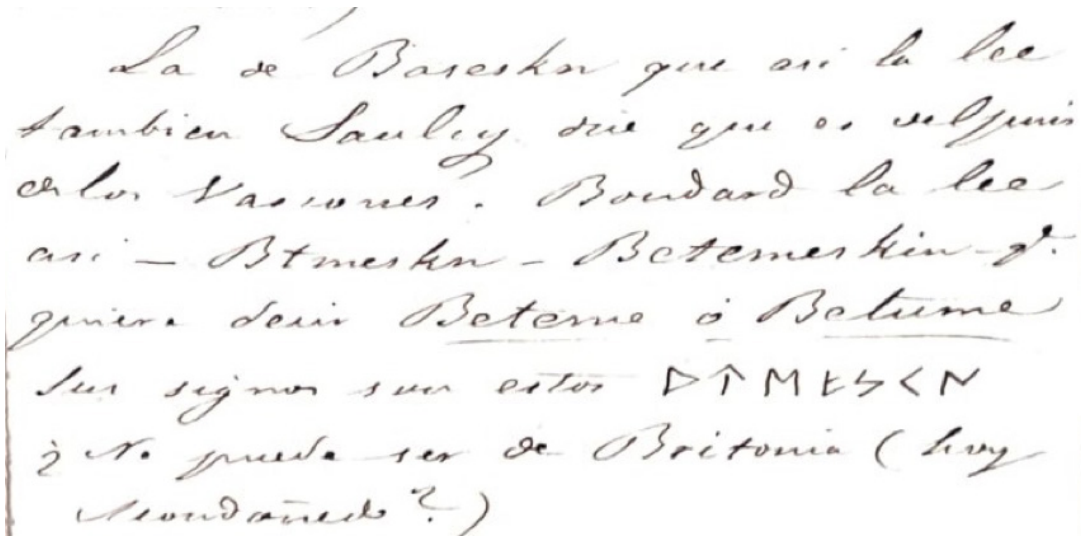 La de Baseskn que asi la lee
tambien Saulcy dice que es del pais
de los Vascones. Boudard la lee
asi — Btmeskn — Betemeskin — q.
quiere decir Beteme ó Betume
Sus signos son estos
¿No puede ser de Britonia (hoy
Mondoñedo?)